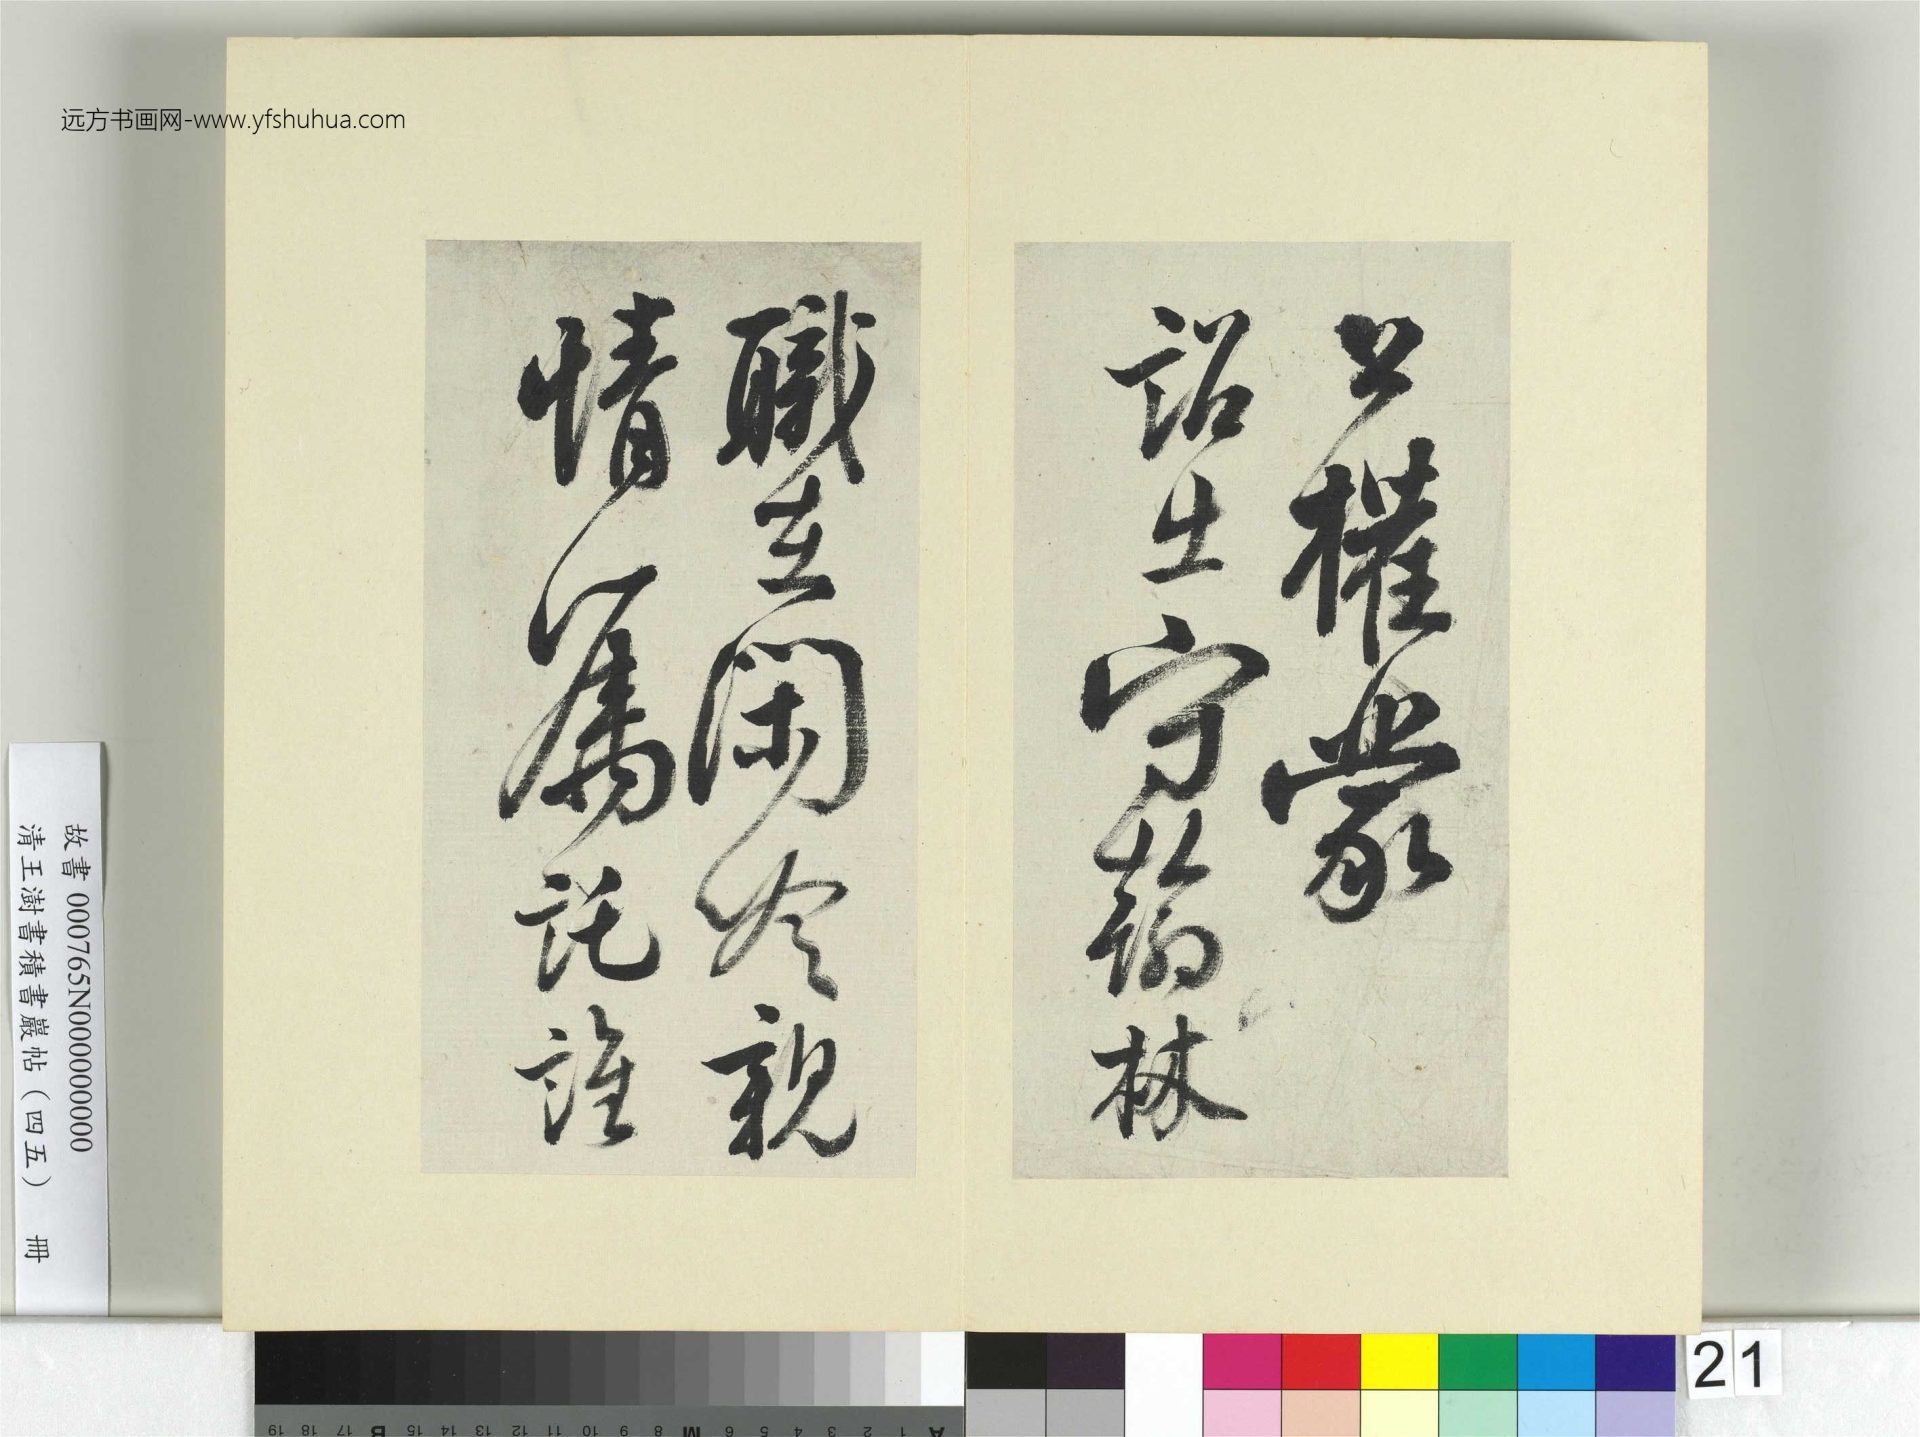 远方书画网-www.yfshuhua.com
公權蒙
詔出守翰林
職在閑冷親
情囑託誰
故書 000765N000000000
清王澍書積書巖帖（四五） 冊
21
A 1 2 3 4 5 6 M 8 9 10 11 12 13 14 15 B 17 18 19